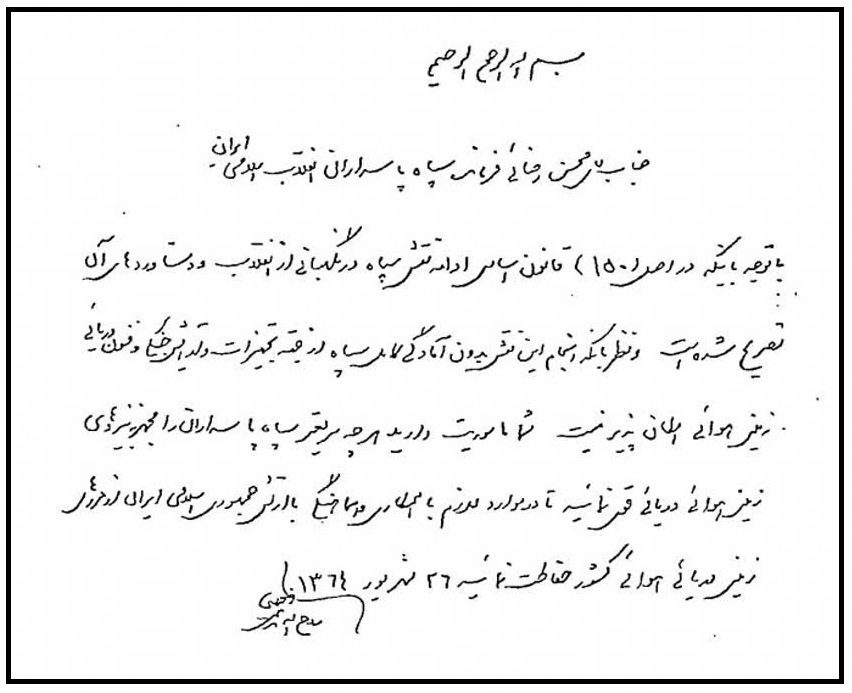 بسم الله الرحمن الرحیم
جناب آقای محسن رضائی فرمانده سپاه پاسداران انقلاب اسلامی ایران
با توجه باینکه در اصل (۱۵۰) قانون اساسی ادامه نقش سپاه در نگهبانی از انقلاب و دستاوردهای آن
تصریح شده است و نظر بانکه انجام این نقش بدون آمادگی کامل سپاه از جهت تجهیزات و فنون دریائی
زمینی هوائی امکان پذیر نیست شما ماموریت دارید هر چه سریعتر سپاه پاسداران را مجهز به نیروهای
زمینی هوائی دریائی قوی نمائید تا در موارد لازم با همکاری و هماهنگی با ارتش جمهوری اسلامی ایران از مرزهای
زمینی دریائی هوائی کشور حفاظت نمائید ۲۶ شهریور ۱۳۶۴
روح الله الموسوی الخمینی